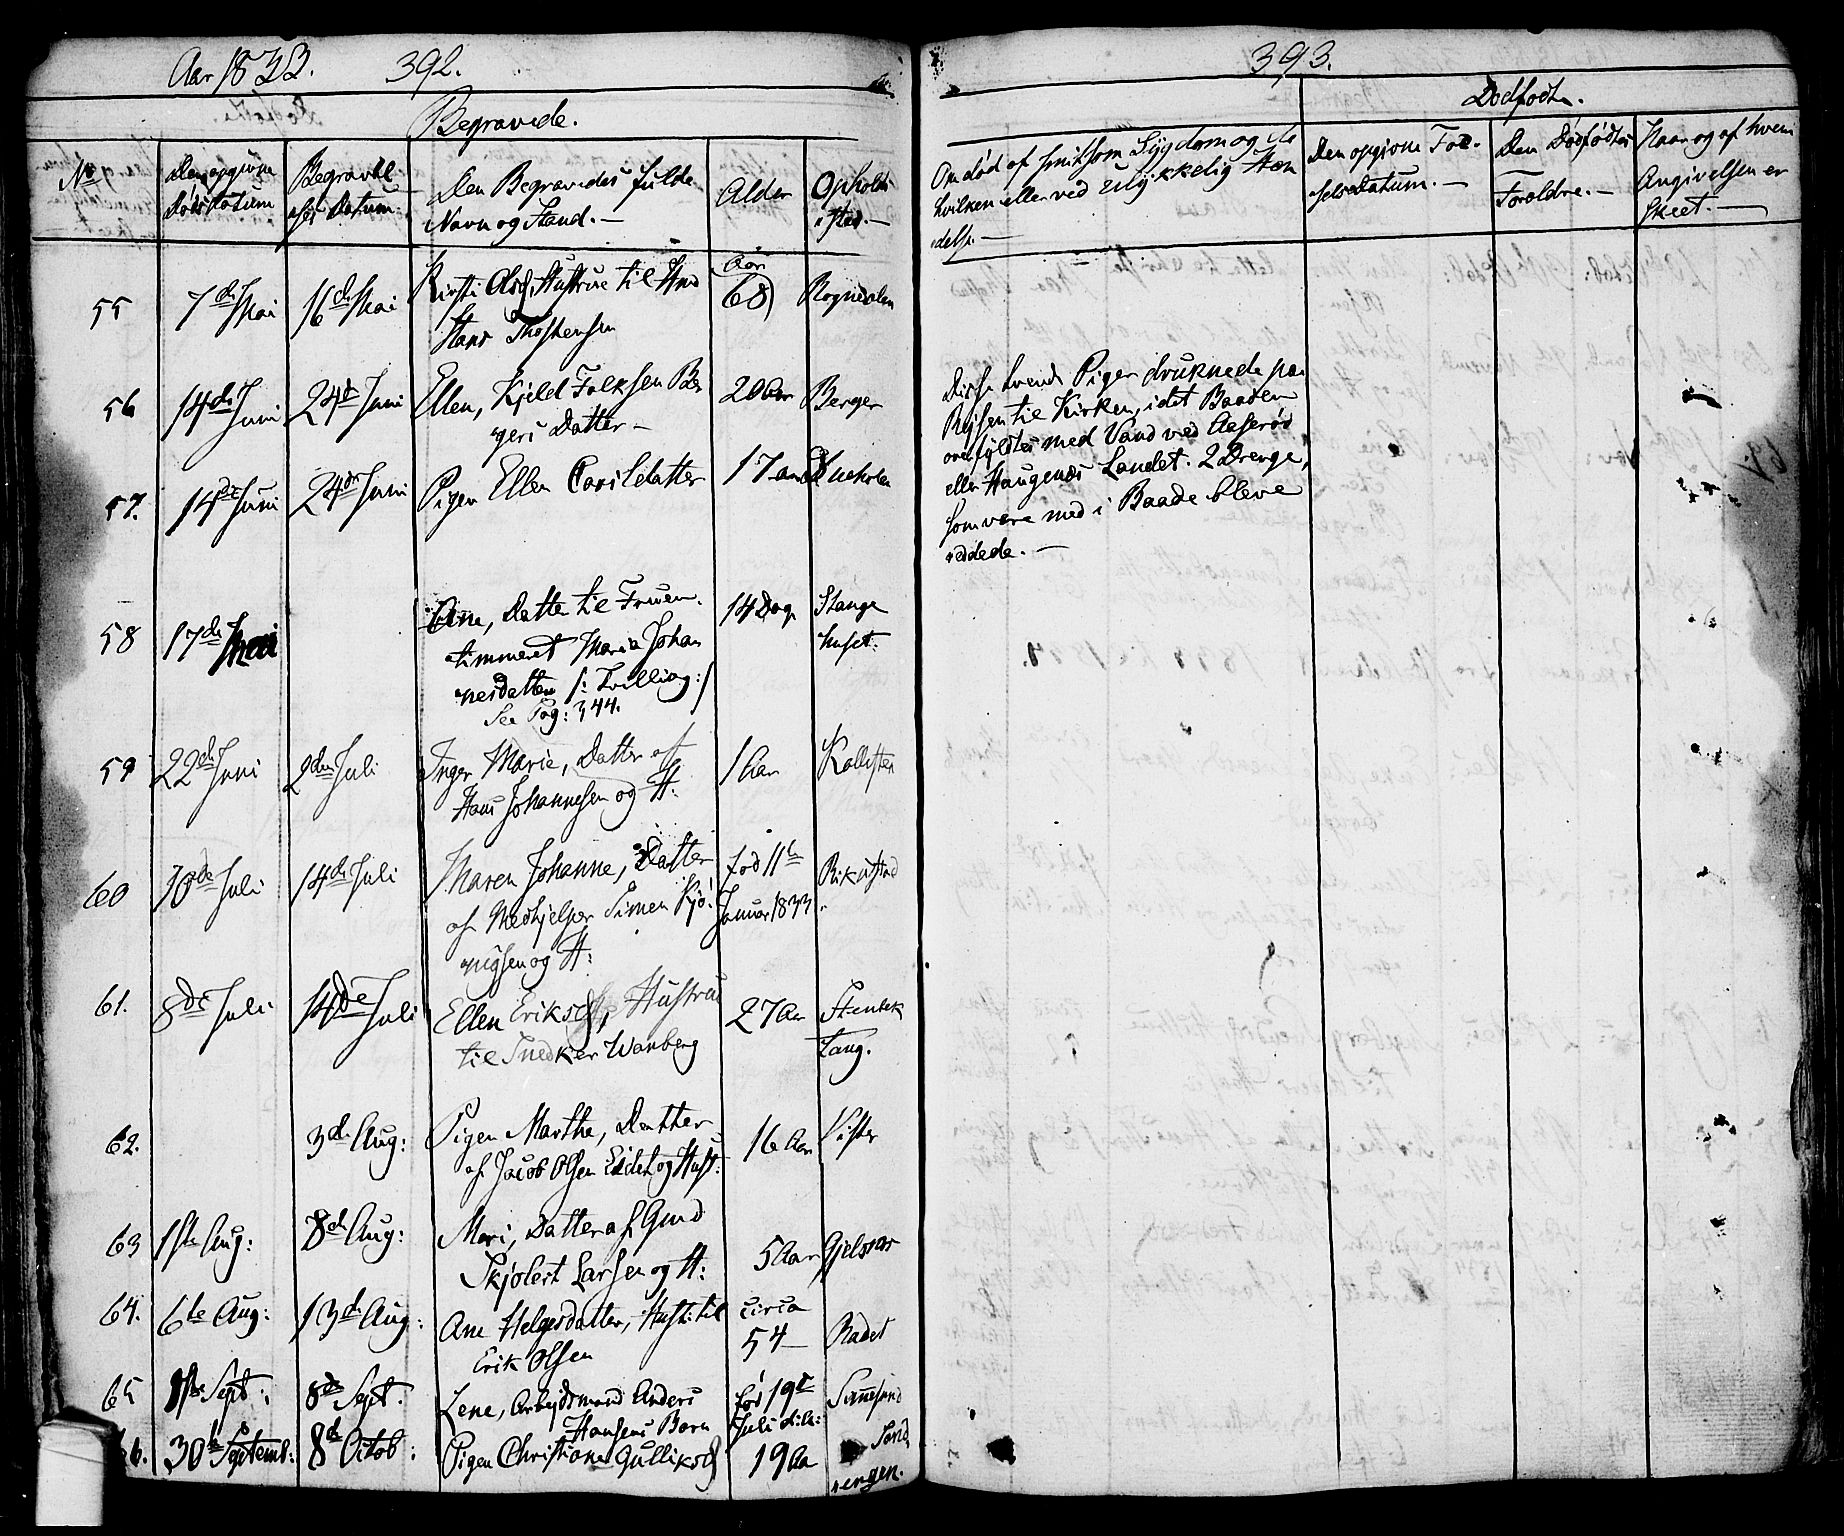 Aar 1833. 392.
Begravede.
No
Den opgivne
Dødsdatum
Begravel
ses Datum.
Den Begravedes fulde
Navn og Stand. —
Alder
Opholds
sted. —
55
7de Mai
16de Mai
Kirsti Olsd, Hustrue til
Hans Thostensen
Aar
68
Rognedalen
56
14de Juni
24de Juni
Ellen, Kjeld Falksen Ber
gers Datter —
20 Aar
Berger
57.
14de Juni
24de Juni
Pigen Ellen Carlsdatter
17 aar
58
17de Mai
Ane, Datter til Fruen
timmeret Maria Johan
nesdatter /: Tvilling :/
See Pag: 344.
14 Dage
Stange
huset.
59
22de Juni
2den Juli
Inger Marie, Datter af
Hans Johannesen og H:
1 Aar
60
10de Juli
14de Juli
Maren Johanne, Datter
af Medhjelper Simen Kjø
nigsen og H:
fød 11te
Januar 1833
61.
8de Juli
14de Juli
Ellen Eriksd, Hustrue
til Snedker Wanberg
27 Aar
Tang.
62.
3de Aug:
Pigen Marthe, Datter
af Jacob Olsen Eidet og Hust:
16 Aar
63
1ste Aug:
8de Aug:
Mari, Datter af Gmd
Skjolert Larsen og H:
5 Aar
64.
6te Aug:
13de Aug:
Ane Helgesdatter, Hust: til
Erik Olsen
circa
54 —
65
1ste Sept:
8de Sept.
Lene, Arbeidsmand Anders
Hansens Barn
fød 19de
Juli
66.
30te Septemb:
8de Octob:
Pigen Christiane Gulliksd
19 Aa
393.
Dødfødte.
Om død af
hvilken eller ved Ulykkelig Hæn
delse. —
Den opgivne Fød-
selsDatum. —
Den Dødfødtes
Forældre. —
Naar og af hvem
Angivelsen er
skeet. —
Disse tvende Piger druknede paa
Rejsen til Kirken, idet Baaden
overfyldtes med Vand ved
eller Haugenæs Landet. 2 Drenge,
som vare med i Baade bleve
reddede. —